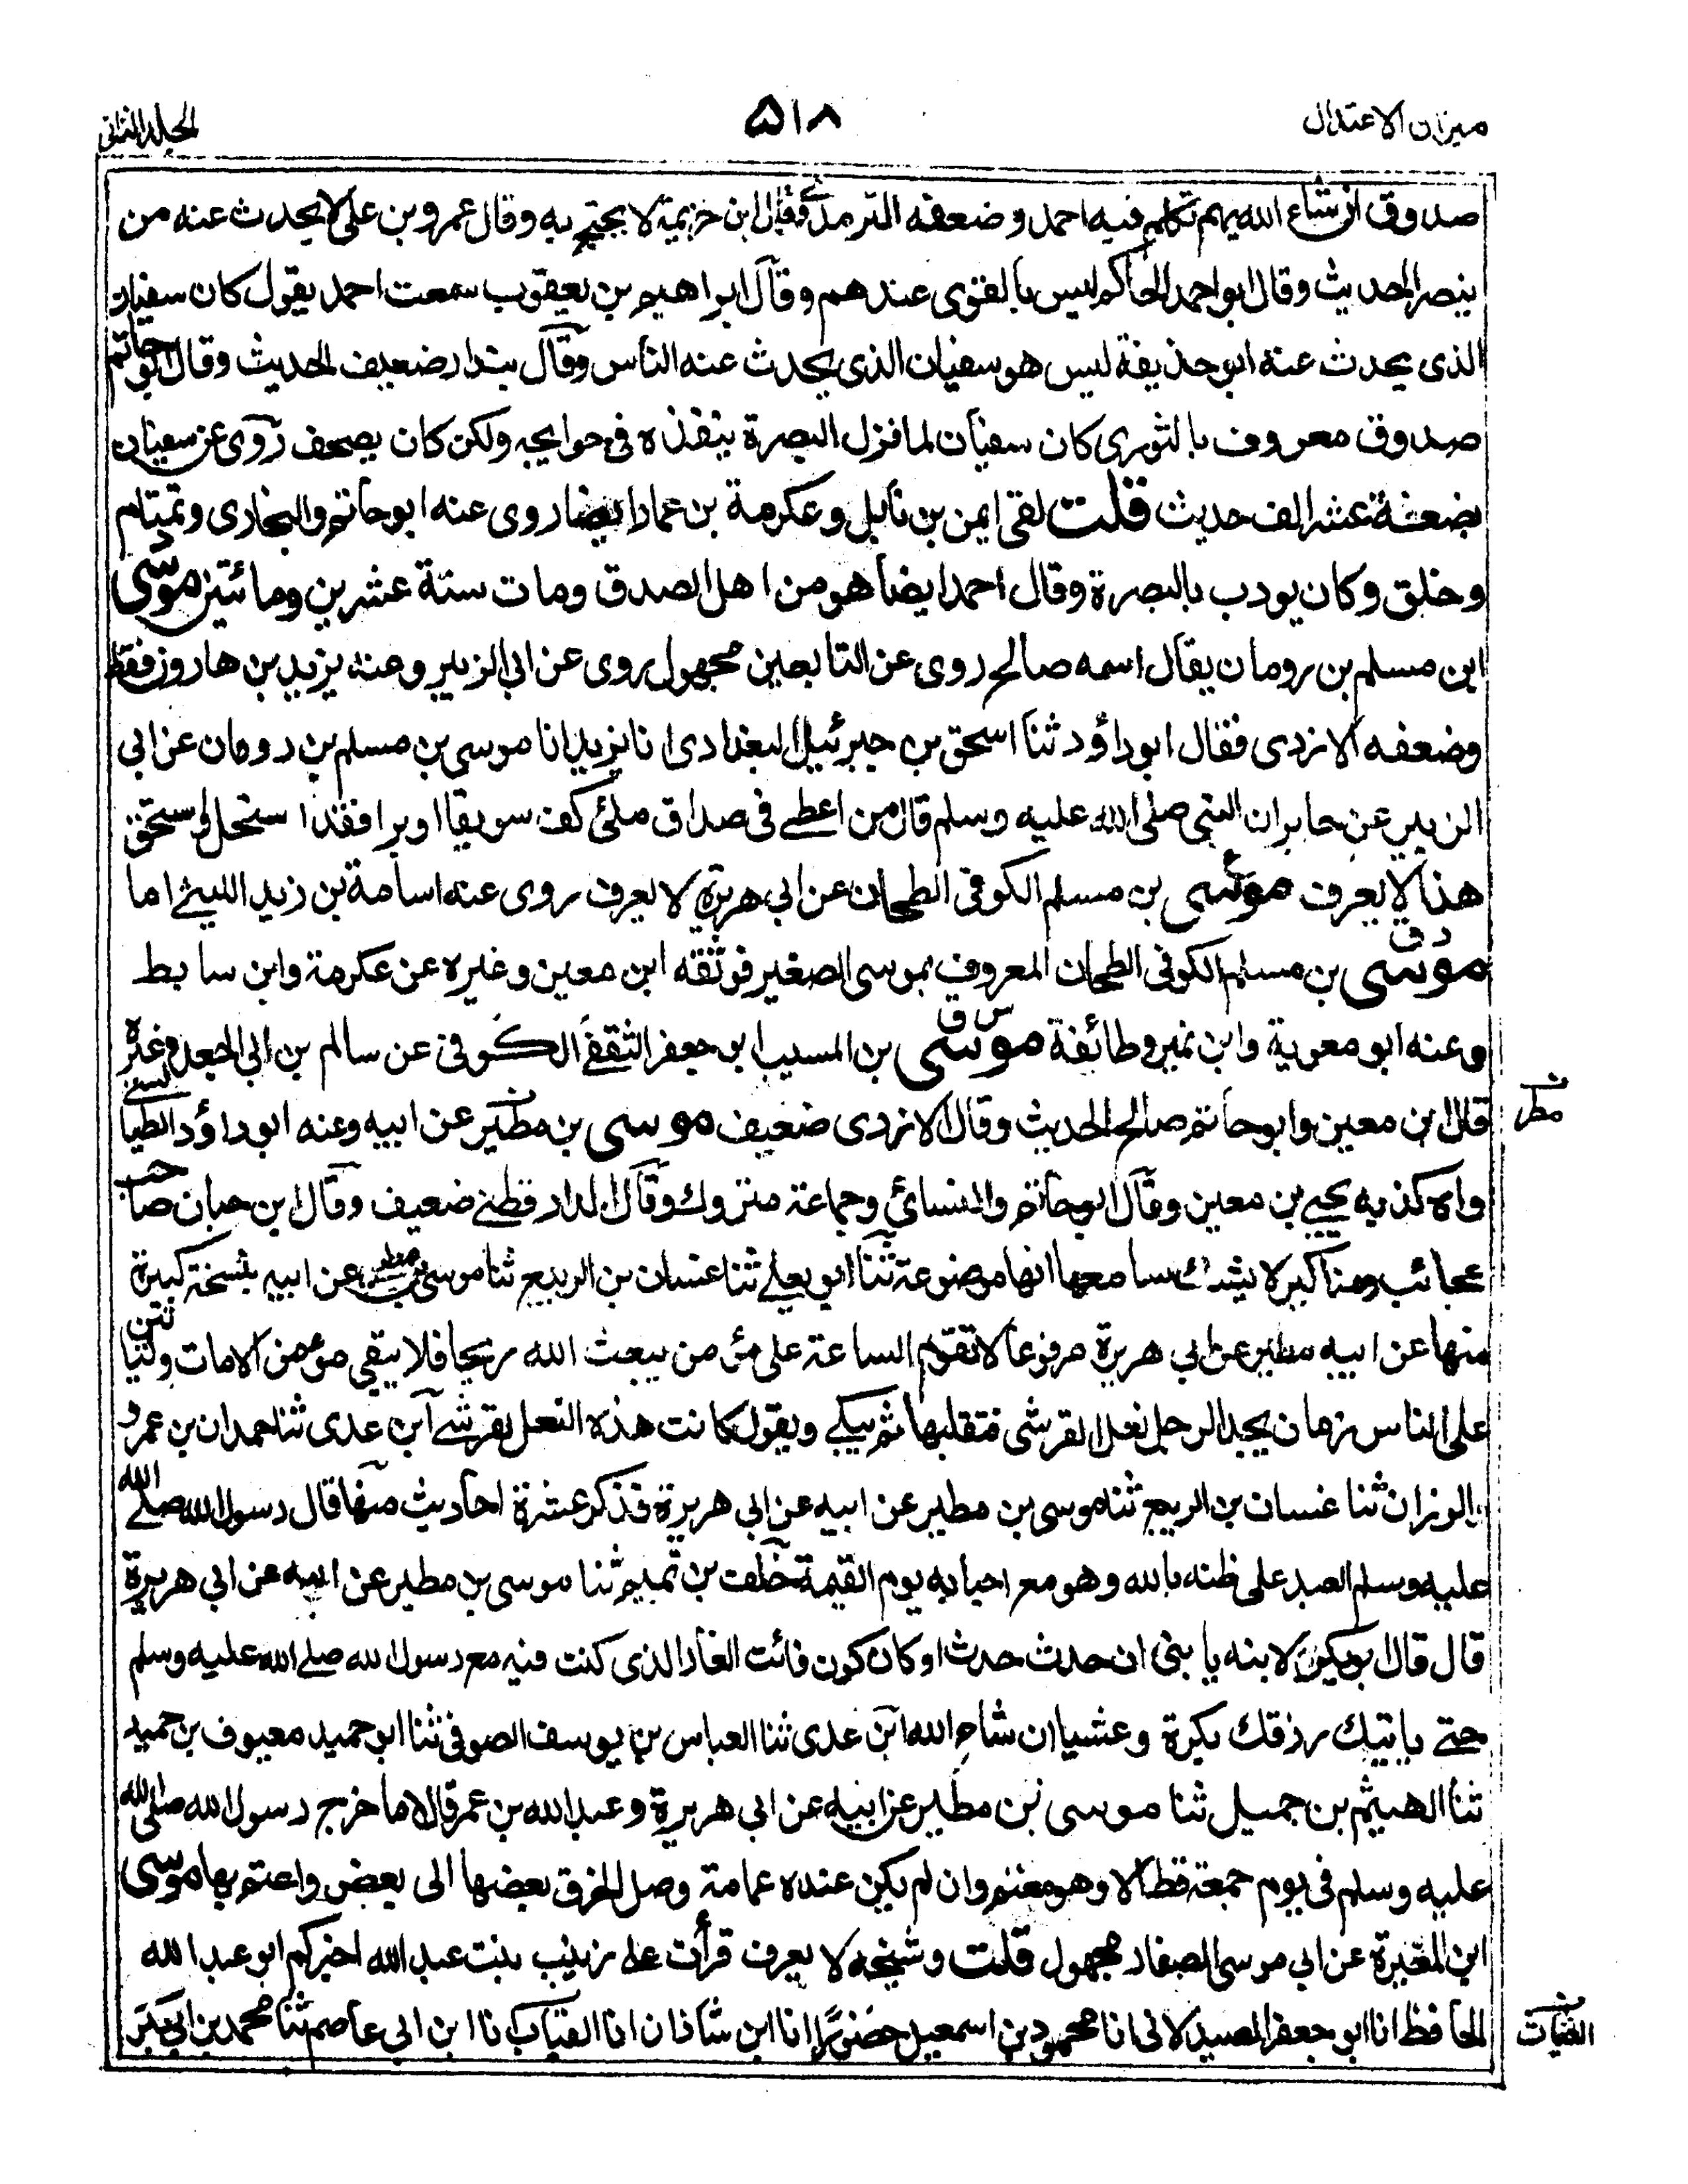 ميزان الاعتدال
۵۱۸
المجلد الثانى
صدوق ان شاء الله يهم تكلم فيه احمد وضعفه الترمذى فقال ابن خزيمة لا يحتج به وقال عمرو بن على لا يحدث عنه من
ينصر الحديث وقال ابو احمد الحاكم ليس بالقوى عندهم وقال ابراهيم بن يعقوب سمعت احمد يقول كان سفيان
الذى يحدث عنه ابو حذيفة ليس هو سفيان الذى يحدث عنه الناس وقال بندار ضعيف الحديث وقال ابو حاتم
صدوق معروف بالثورى كان سفيان لما نزل البصرة ينفذه فى حوايجه ولكن كان يصحف روى عن سفيان
بضعة عشر الف حديث قلت لقى ايمن بن نابل وعكرمة بن عمار ايضا روى عنه ابو حاتم والبخارى وتمتام
وخلق وكان يودب بالبصرة وقال احمد ايضا هو من اهل الصدق ومات سنة عشرين ومائتين موسى
ابن مسلم بن رومان يقال اسمه صالح روى عن التابعين مجهول يروى عن ابى الزبير وعنه يزيد بن هارون فقط
وضعفه الازدى فقال ابو داؤد ثنا اسحق بن جبرئيل البغدادى انا يزيد انا موسى بن مسلم بن رومان عن ابى
الزبير عن جابر ان النبى صلى الله عليه وسلم قال من اعطى فى صداق ملئ كف سويقا او برا فقد استحل
هذا لا يعرف موسى بن مسلم الكوفى الطحان عن ابى هريرة لا يعرف روى عنه اسامة بن زيد الليثى اما
د ق
موسى بن مسلم الكوفى الطحان المعروف بموسى الصغير فوثقه ابن معين وغيره عن عكرمة وابن سابط
س ق
وعنه ابو معوية وابن نمير وطائفة موسى بن المسيب ابو جعفر الثقفى الكوفى عن سالم بن ابى الجعد وغيره
قال ابن معين وابو حاتم صالح الحديث وقال الازدى ضعيف موسى بن مطير عن ابيه وعنه ابو داؤد الطيالسى
مطر
واه كذبه يحيى بن معين وقال ابو حاتم والنسائى وجماعة متروك وقال الدارقطنى ضعيف وقال ابن حبان صاحب
عجائب ومناكير لا يشك سامعها انها موضوعة ثنا ابو يعلى ثنا غسان بن الربيع ثنا موسى بن مطير عن ابيه بنسخة كبيرة
منها عن ابيه مطير عن ابى هريرة مرفوعا لا تقوم الساعة على مؤمن يبعث الله ريحا فلا يبقى مؤمن الا مات
على الناس زمان يجد الرجل نعل القرشى فتقلبها ثم يبكى ويقول كانت هذه النعل لقرشى ابن عدى ثنا حمدان بن عمرو
الوزان ثنا غسان بن الربيع ثنا موسى بن مطير عن ابيه عن ابى هريرة فذكر عشرة احاديث منها قال رسول الله صلى الله
عليه وسلم العبد على ظنه بالله وهو مع احبابه يوم القيمة خلف بن تميم ثنا موسى بن مطير عن ابيه عن ابى هريرة
قال قال ابو بكر لابنه يا بنى ان حدث حدث او كان كون فائت الغار الذى كنت فيه مع رسول الله صلى الله عليه وسلم
حتى ياتيك رزقك بكرة وعشيا ان شاء الله ابن عدى ثنا العباس بن يوسف الصوفى ثنا ابو حميد معيوف بن حميد
ثنا الهيثم بن جميل ثنا موسى بن مطير عن ابيه عن ابى هريرة وعبد الله بن عمر قالا ما خرج رسول الله صلى الله
عليه وسلم فى يوم جمعة قط الا وهو معتم وان لم يكن عنده عمامة وصل الخرق بعضها الى بعض واعتم بها موسى
ابن المغيرة عن ابى موسى الصفار مجهول قلت وشيخه لا يعرف قرأت على زينب بنت عبد الله اخبركم ابو عبد الله
الحافظ انا ابو جعفر الصيدلانى انا محمود بن اسمعيل حضورا انا ابن شاذان انا القباب نا ابن ابى عاصم ثنا محمد بن ابى بكر